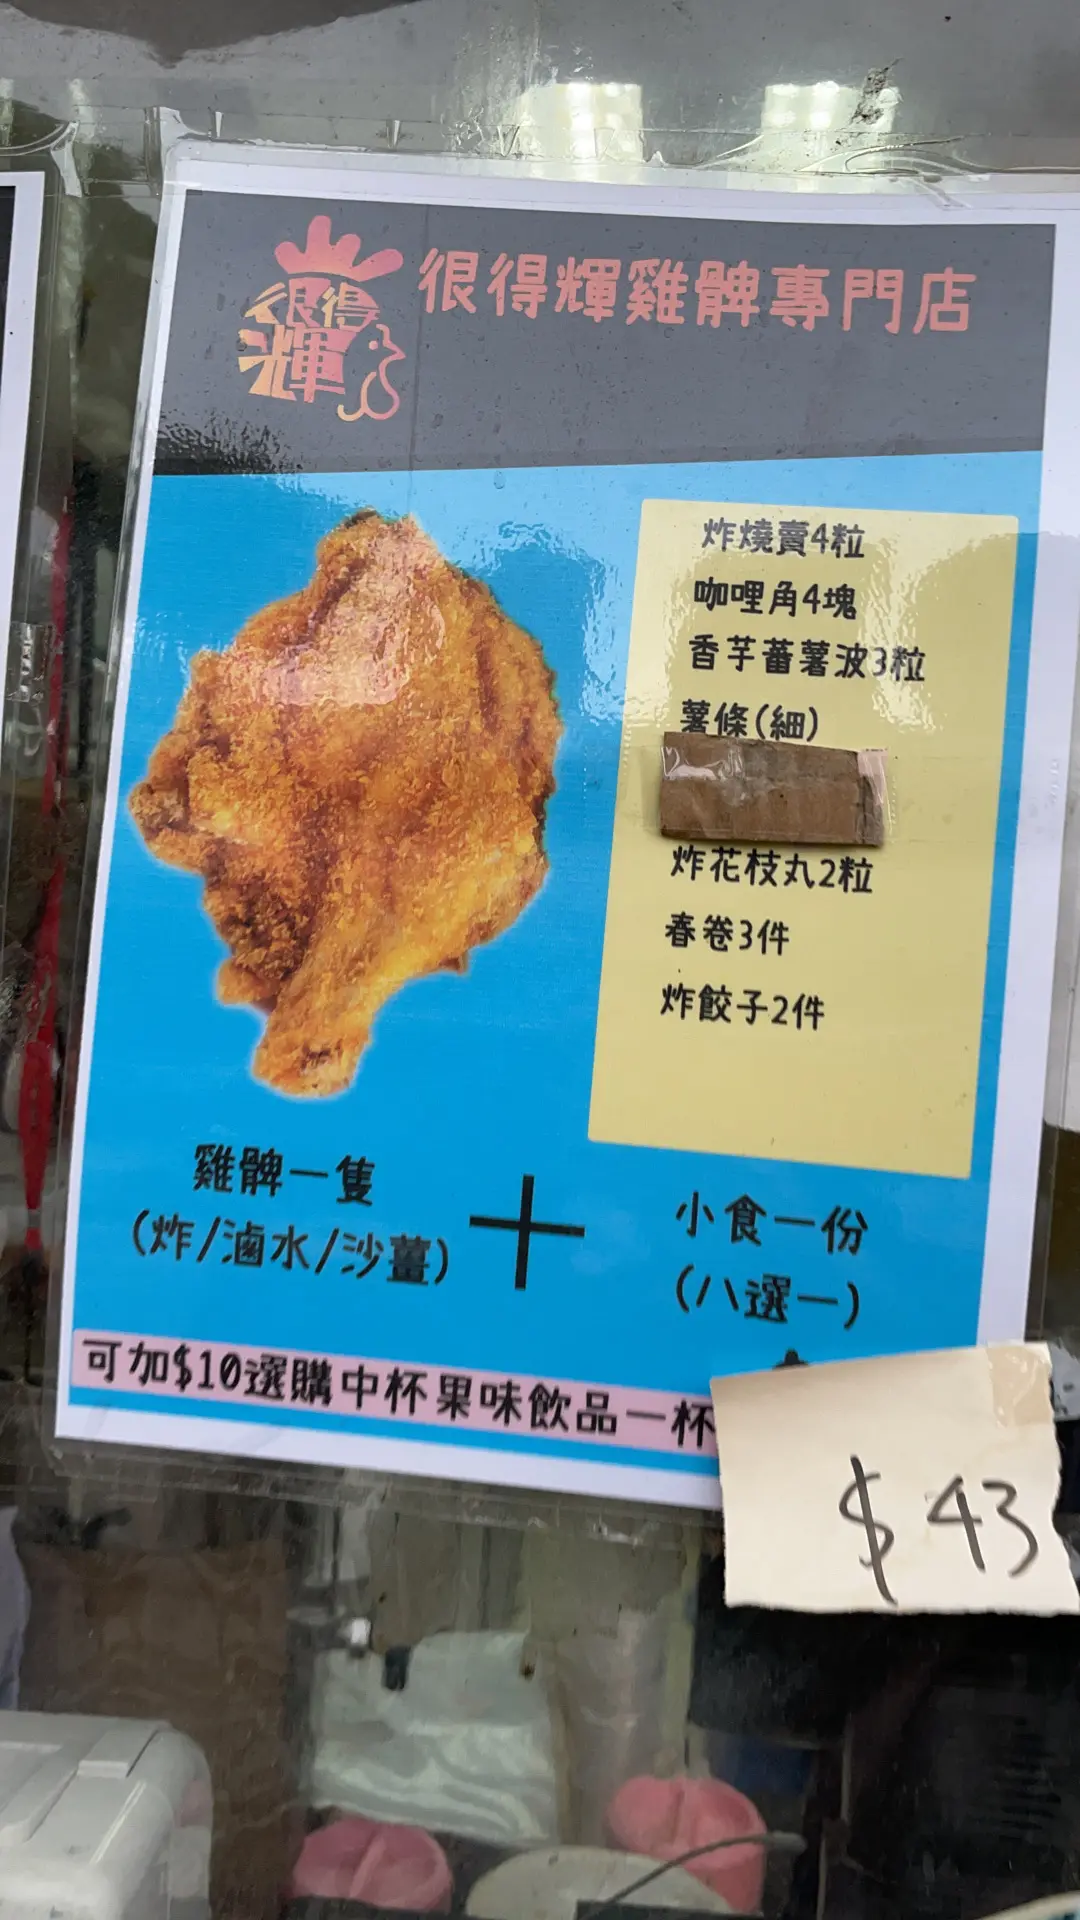 很得
輝
很得輝雞髀專門店
炸燒賣4粒
咖哩角4塊
香芋蕃薯波3粒
薯條(細)
炸花枝丸2粒
春卷3件
炸餃子2件
雞髀一隻
(炸/滷水/沙薑)
+
小食一份
(八選一)
可加$10選購中杯果味飲品一杯
$43